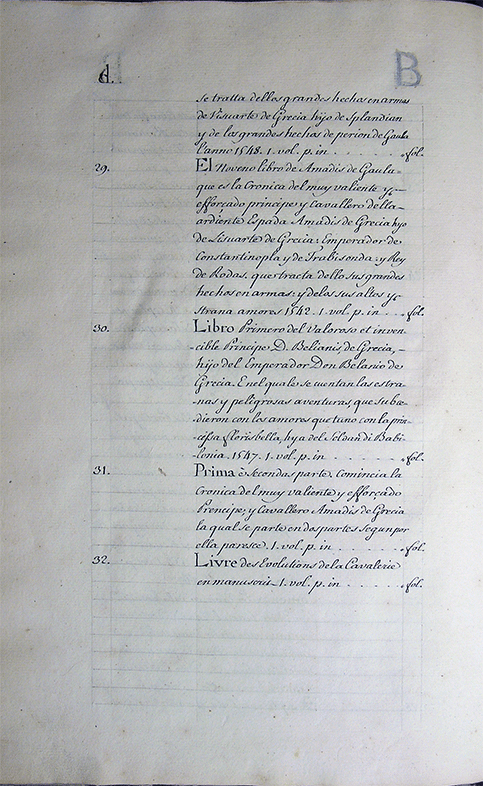 d. B
se tratta dellos grandes hechos en armas
de Lisuarte de Grecia hijo de Splandian
y de las grandes hechos de perion de Gaula
l'anno 1548. 1. vol. p. in . . . . . . fol.
29. El Noveno libro de Amadis de Gaula
que es la Cronica del muy valiente y
efforçado principe y Cavallero della
ardiente Espada Amadis de Grecia hijo
de Lisuarte de Grecia: Emperador de
Constantinopla y de Trabisonda: y Rey
de Rodas. que tracta dello sus grandes
hechos en armas: y de los sus altos y
strana amores 1542. 1. vol. p. in . . fol.
30. Libro Primero del Valoroso et inven-
-cible Principe D. Belianis, de Grecia,
hijo del Emperador Don Belanio de
Grecia. En el quale se cuentan las estra-
nas y peligrosas aventuras, que su be-
-dieron con los amores que tuno con la prin-
-cisa florisbella, hya del Soldan di Babi-
-lonia. 1547. 1. vol. p. in . . . . . . fol.
31. Prima è Secondas parte. Comincia la
Cronica del muy valiente y efforçado
Prencipe; y Cavallero Amadis de Grecia
la qual se parte en dos partes segun por
ella paresce. 1. vol. p. in . . . . . . fol.
32. Livre des Evolutions de la Cavalerie
en manuscrit 1. vol. p. in . . . . . . fol.